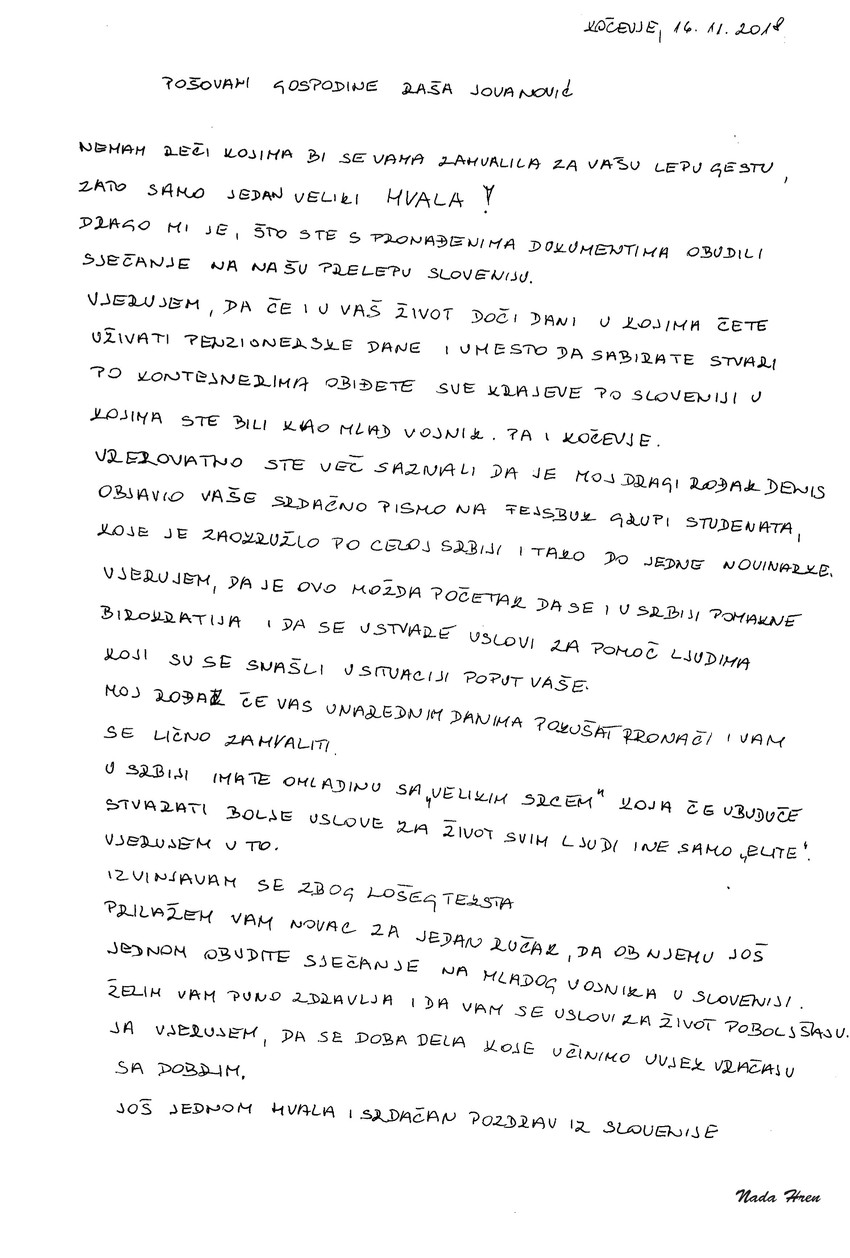 KOČEVJE, 16. 11. 2018
POŠOVANI GOSPODINE RAŠA JOVANOVIĆ
NEMAM REČI KOJIMA BI SE VAMA ZAHVALILA ZA VAŠU LEPU GESTU,
ZATO SAMO JEDAN VELIKI HVALA!
DRAGO MI JE, ŠTO STE S PRONAĐENIMA DOKUMENTIMA OBUDILI
SJEČANJE NA NAŠU PRELEPU SLOVENIJU.
VJERUJEM, DA ČE I U VAŠ ŽIVOT DOČI DANI U KOJIMA ČETE
UŽIVATI PENZIONERSKE DANE I UMESTO DA SABIRATE STVARI
PO KONTEJNERIMA OBIĐETE SVE KRAJEVE PO SLOVENIJI U
KOJIMA STE BILI KAO MLAD VOJNIK. PA I KOČEVJE.
VREROVIATNO STE VEČ SAZNALI DA JE MOJ DRAGI ROĐAK DENIS
OBJAVIO VAŠE SRDAČNO PISMO NA FEJSBUK GRUPI STUDENATA,
KOJE JE ZAOKRUŽILO PO CELOJ SRBIJI I TAKO DO JEDNE NOVINARKE.
VJERUJEM, DA JE OVO MOŽDA POČETAK DA SE I U SRBIJI POMAKNE
BIROKRATIJA I DA SE USTVARE USLOVI ZA POMOČ LJUDIMA
KOJI SU SE SNAŠLI U SITUACIJI POPUT VAŠE.
MOJ ROĐAK ČE VAS U NAREDNIM DANIMA POKUŠAT PRONAČI I VAM
SE LIČNO ZAHVALITI.
U SRBIJI IMATE OMLADINU SA „VELIKIM SRCEM" KOJA ČE UBUDUČE
STVARATI BOLJE USLOVE ZA ŽIVOT SVIM LJUDI I NE SAMO „ELITE".
VJERUJEM U TO.
IZVINJAVAM SE ZBOG LOŠEG TEKSTA
PRILAŽEM VAM NOVAC ZA JEDAN RUČAK, DA OB NJEMU JOŠ
JEDNOM OBUDITE SJEČANJE NA MLADOG VOJNIKA U SLOVENIJI.
ŽELIM VAM PUNO ZDRAVLJA I DA VAM SE USLOVI ZA ŽIVOT POBOLJŠAJU.
JA VJERUJEM, DA SE DOBA DELA KOJE UČINIMO UVJEK VRAČAJU
SA DOBRIM.
JOŠ JEDNOM HVALA I SRDAČAN POZDRAV IZ SLOVENIJE
Nada Hren